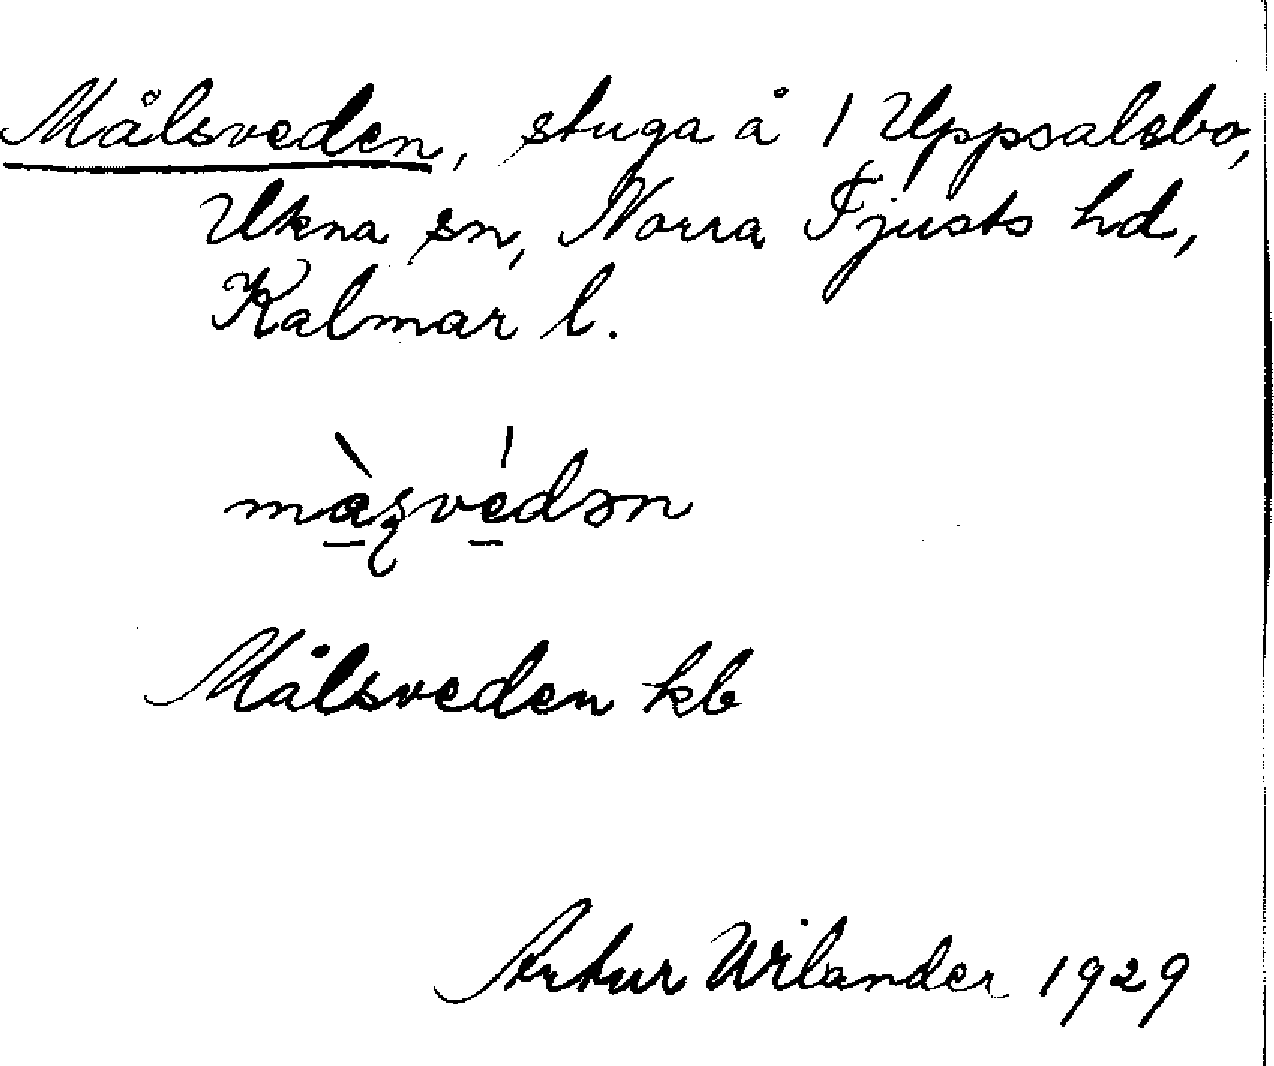 Målsveden, stuga å 1 Uppsalebo,
Ukna sn, Norra Tjusts hd,
Kalmar l.
Målsveden kb
Artur Wilander 1929